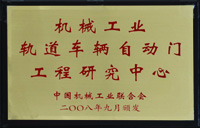 机械工业
轨道车辆自动门
工程研究中心
中国机械工业联合会
二〇〇八年九月颁发